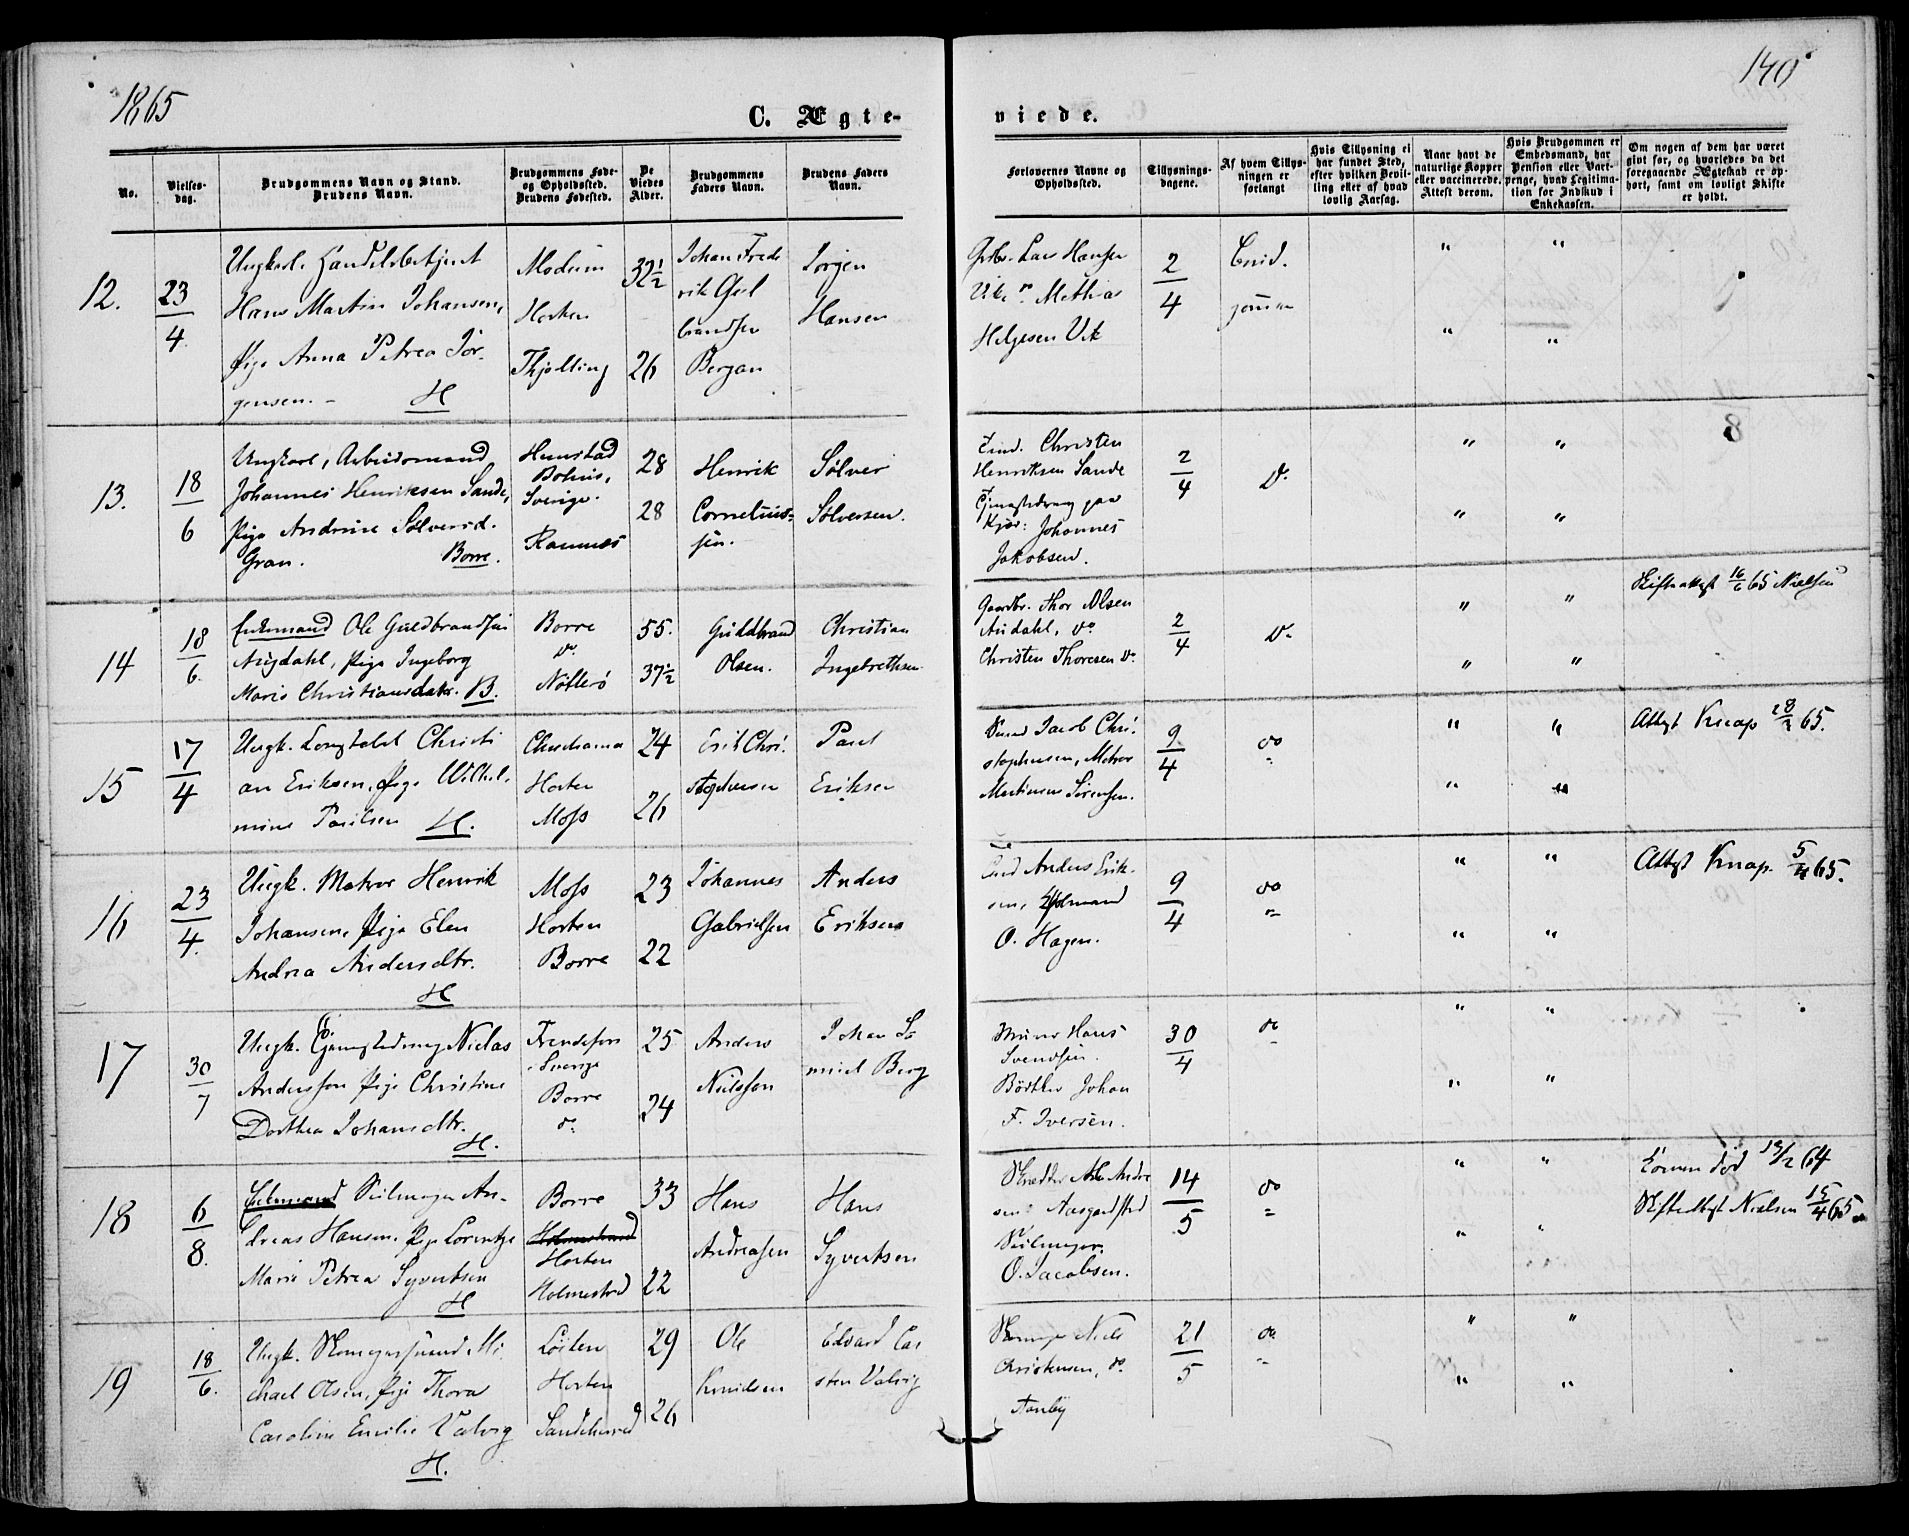 1865
140
C. Ægte-
viede.
No.
Vielses-
dag.
Brudgommens Navn og Stand.
Brudens Navn.
Brudgommens Føde-
og Opholdssted.
Brudens Fødested.
De
Viedes
Alder.
Brudgommens
Faders Navn.
Brudens Faders
Navn.
Forlovernes Navne og
Opholdssted.
Tillysnings-
dagene.
Af hvem Tillys-
ningen er
forlangt
Hvis Tillysning ei
har fundet Sted,
efter hvilken Bevil-
ling eller af hvad
lovlig Aarsag.
Naar havt de
naturlige Kopper
eller vaccinerede.
Attest derom.
Hvis Brudgommen er
Embedsmand, har
Pension eller Vart-
penge, hvad Legitima-
tion for Indskud i
Enkekassen.
Om nogen af dem har været
gift før, og hvorledes da det
foregaaende Ægteskab er op-
hørt, samt om lovligt Skifte
er holdt.
12.
23/4
Ungkarl. Handelsbetjent
Hans Martin Johansen,
Pige Anna Petrea Jør-
gensen. - H
Modum
Horten
Thjølling
32½
26
Johan Frede
rik Gul
brandsen
Bergan
Jørgen
Hansen
Grbr. Lars Hansen
Vik Mathias
Helgesen Vik
2/4
Brud.
gommen
" "
" "
13.
18/6
Ungkarl, Arbeidsmand
Johannes Henriksen Sande,
Pige Andrine Sølversd.
Gran. Borre.
Hunstad
Bohus,
Sverige.
Ramnes
28
28
Henrik
Cornelius-
sen.
Sølver
Sølversen.
Christen
Henriksen Sande
Johannes
Jakobsen.
2/4
Do
" "
" "
14
18/6.
Enkemand Ole Guldbrandsen
Augdahl, Pige Ingeborg
Marie Christiansdatr. B.
Borre
Do
Nøtterø
55.
37½
Guldbrand
Olsen.
Christian
Ingebrethsen
Gaardbr. Thor Olsen
Audahl, Do
Christen Thoresen Do
2/4
Do
" "
" "
Skifteattest 16/6 65 Nielsen
15
17/4
Ungk. Christi
an Eriksen, Pige Wilhel-
mine Paulsen H.
Christiania
Horten
Moss
24
26
Erik Chri-
stophersen
Paul
Eriksen
Jacob Chri-
stophersen, Matros
Martinius Sørensen.
9/4
do
" "
" "
Attest Knap 28/3 65.
16
23/4.
Ungk. Matros Henrik
Johansen, Pige Elen
Andrea Andersdtr.
H
Moss
Horten
Borre
23
22
Johannes
Gabrielsen
Anders
Eriksen
Anders Erik-
sen,
O. Hagen.
9/4
do
" "
" "
Attest Knap. 5/4 65.
17
30/7
Ungk. Niclas
Andersson Pige Christine
Dorthea Johansdtr.
H.
Sverige
Borre
do
25
24
Anders
Nielsson
Johan Sa
muel Berg
Murer Hans
Svendsen.
Bødtker Johan
F. Iversen.
30/4
do
" "
" "
18
6/8.
Enkemand Seilmager An-
dreas Hansen, Pige Lorentze
Marie Petrea Syvertsen
H
Borre
Holmestrand
Horten
Holmestrd
33
22
Hans
Andreasen
Hans
Syvertsen
Andre
sen Aasgardstrd
Seilmager
O. Jacobsen.
14/5
do
" "
" "
Konen død 19/2 64
Skifteattest Nielsen 15/4 65
19
18/6.
Ungk. Skomagersvend Mi-
chael Olsen, Pige Thora
Caroline Emilie Valvig
H.
Løiten
Horten
Sandeherred
29
26
Ole
Knudsen
Edvard Car
sten Valvig
Skomager Niels
Christensen, do
Aanby
21/5
do
" "
" "